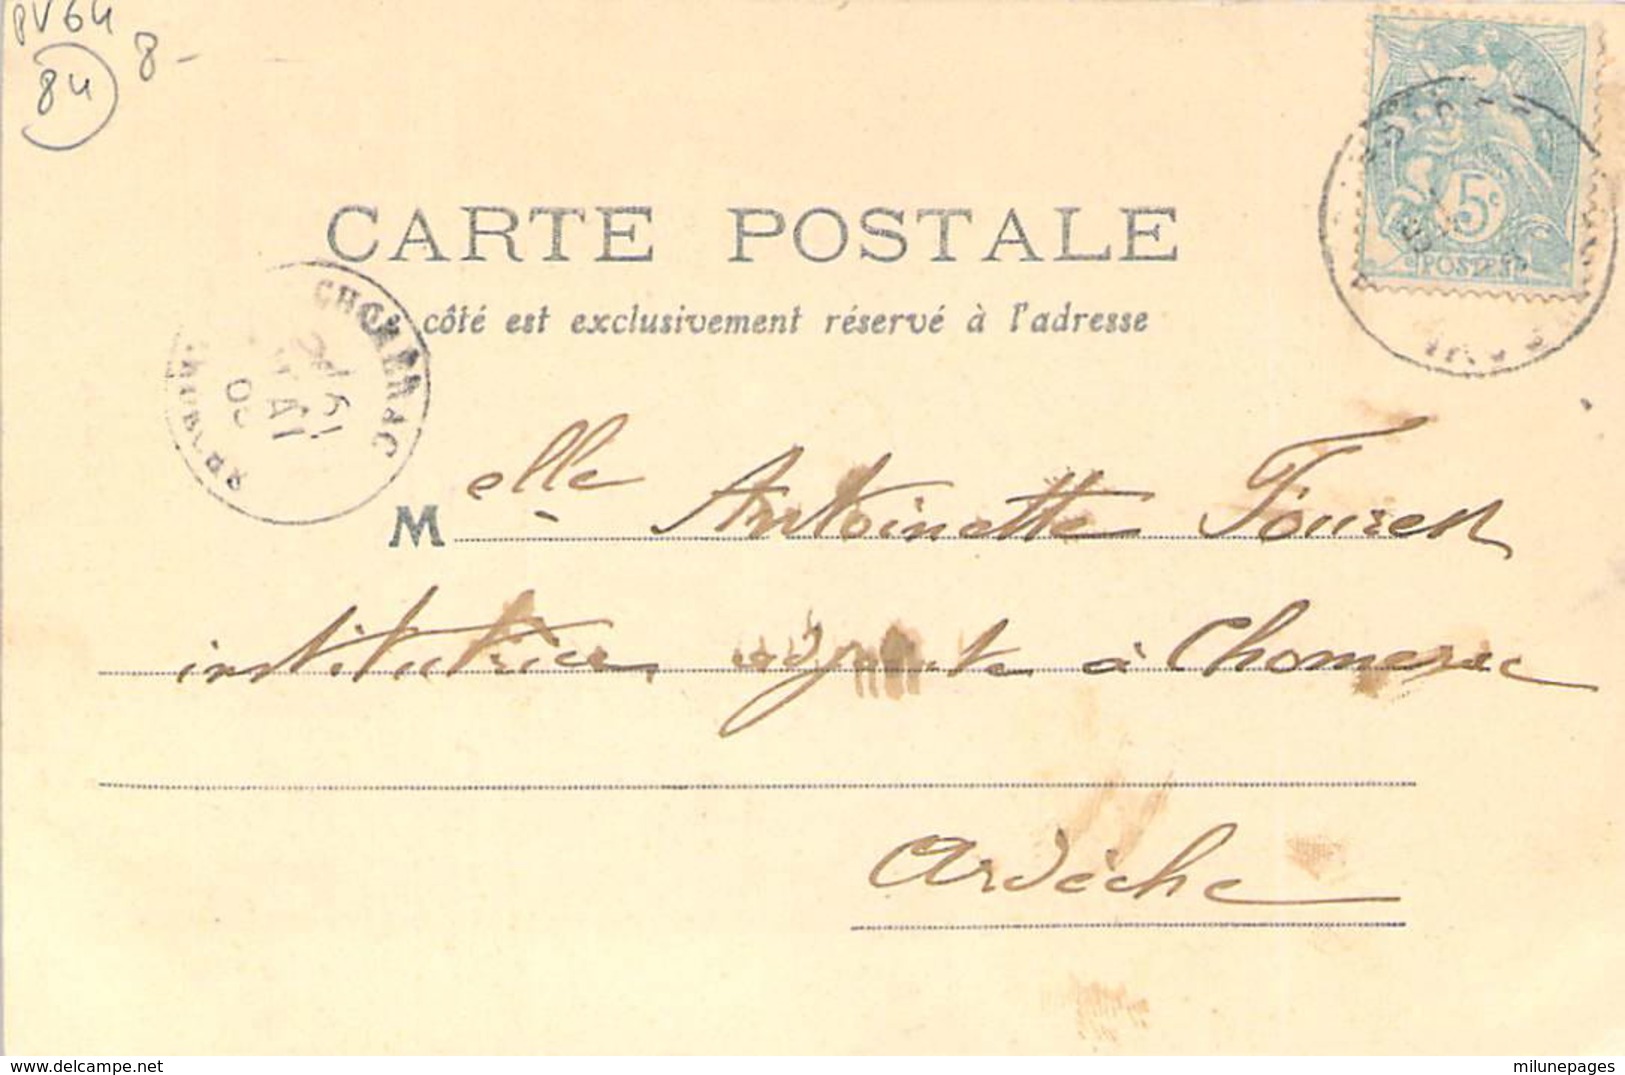 PV64
84
8-
CARTE POSTALE
côté est exclusivement réservé à l'adresse
CHOMERAC
5c
POSTES
Melle Antoinette Fourest
institutrice adjointe à Chomerac
Ardèche
delcampe.net
milunepages